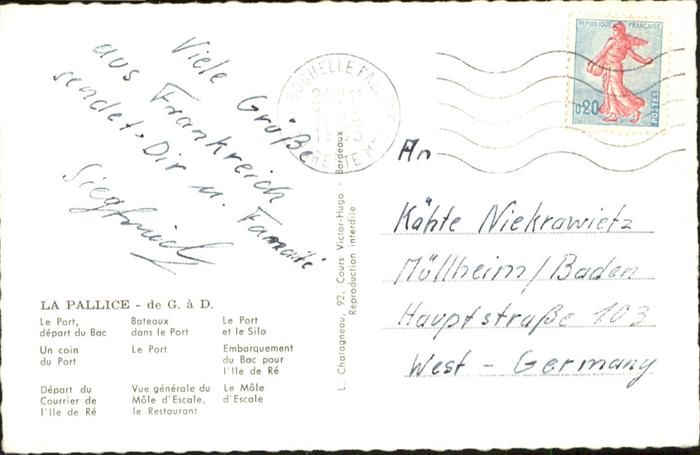 Viele Grüße
aus Frankreich
sendet Dir u. Familie
Siegfried
LA PALLICE - de G. à D.
Le Port, départ du Bac
Bateaux dans le Port
Le Port et le Silo
Un coin du Port
Le Port
Embarquement du Bac pour l'Ile de Ré
Départ du Courrier de l'Ile de Ré
Vue générale du Môle d'Escale, le Restaurant
Le Môle d'Escale
L. Chatagneau, 92, Cours Victor-Hugo - Bordeaux
Reproduction interdite
ROCHELLE
REPUBLIQUE FRANÇAISE
0,20
POSTES
An
Kähte Niekrawietz
Müllheim/Baden
Hauptstraße 103
West - Germany